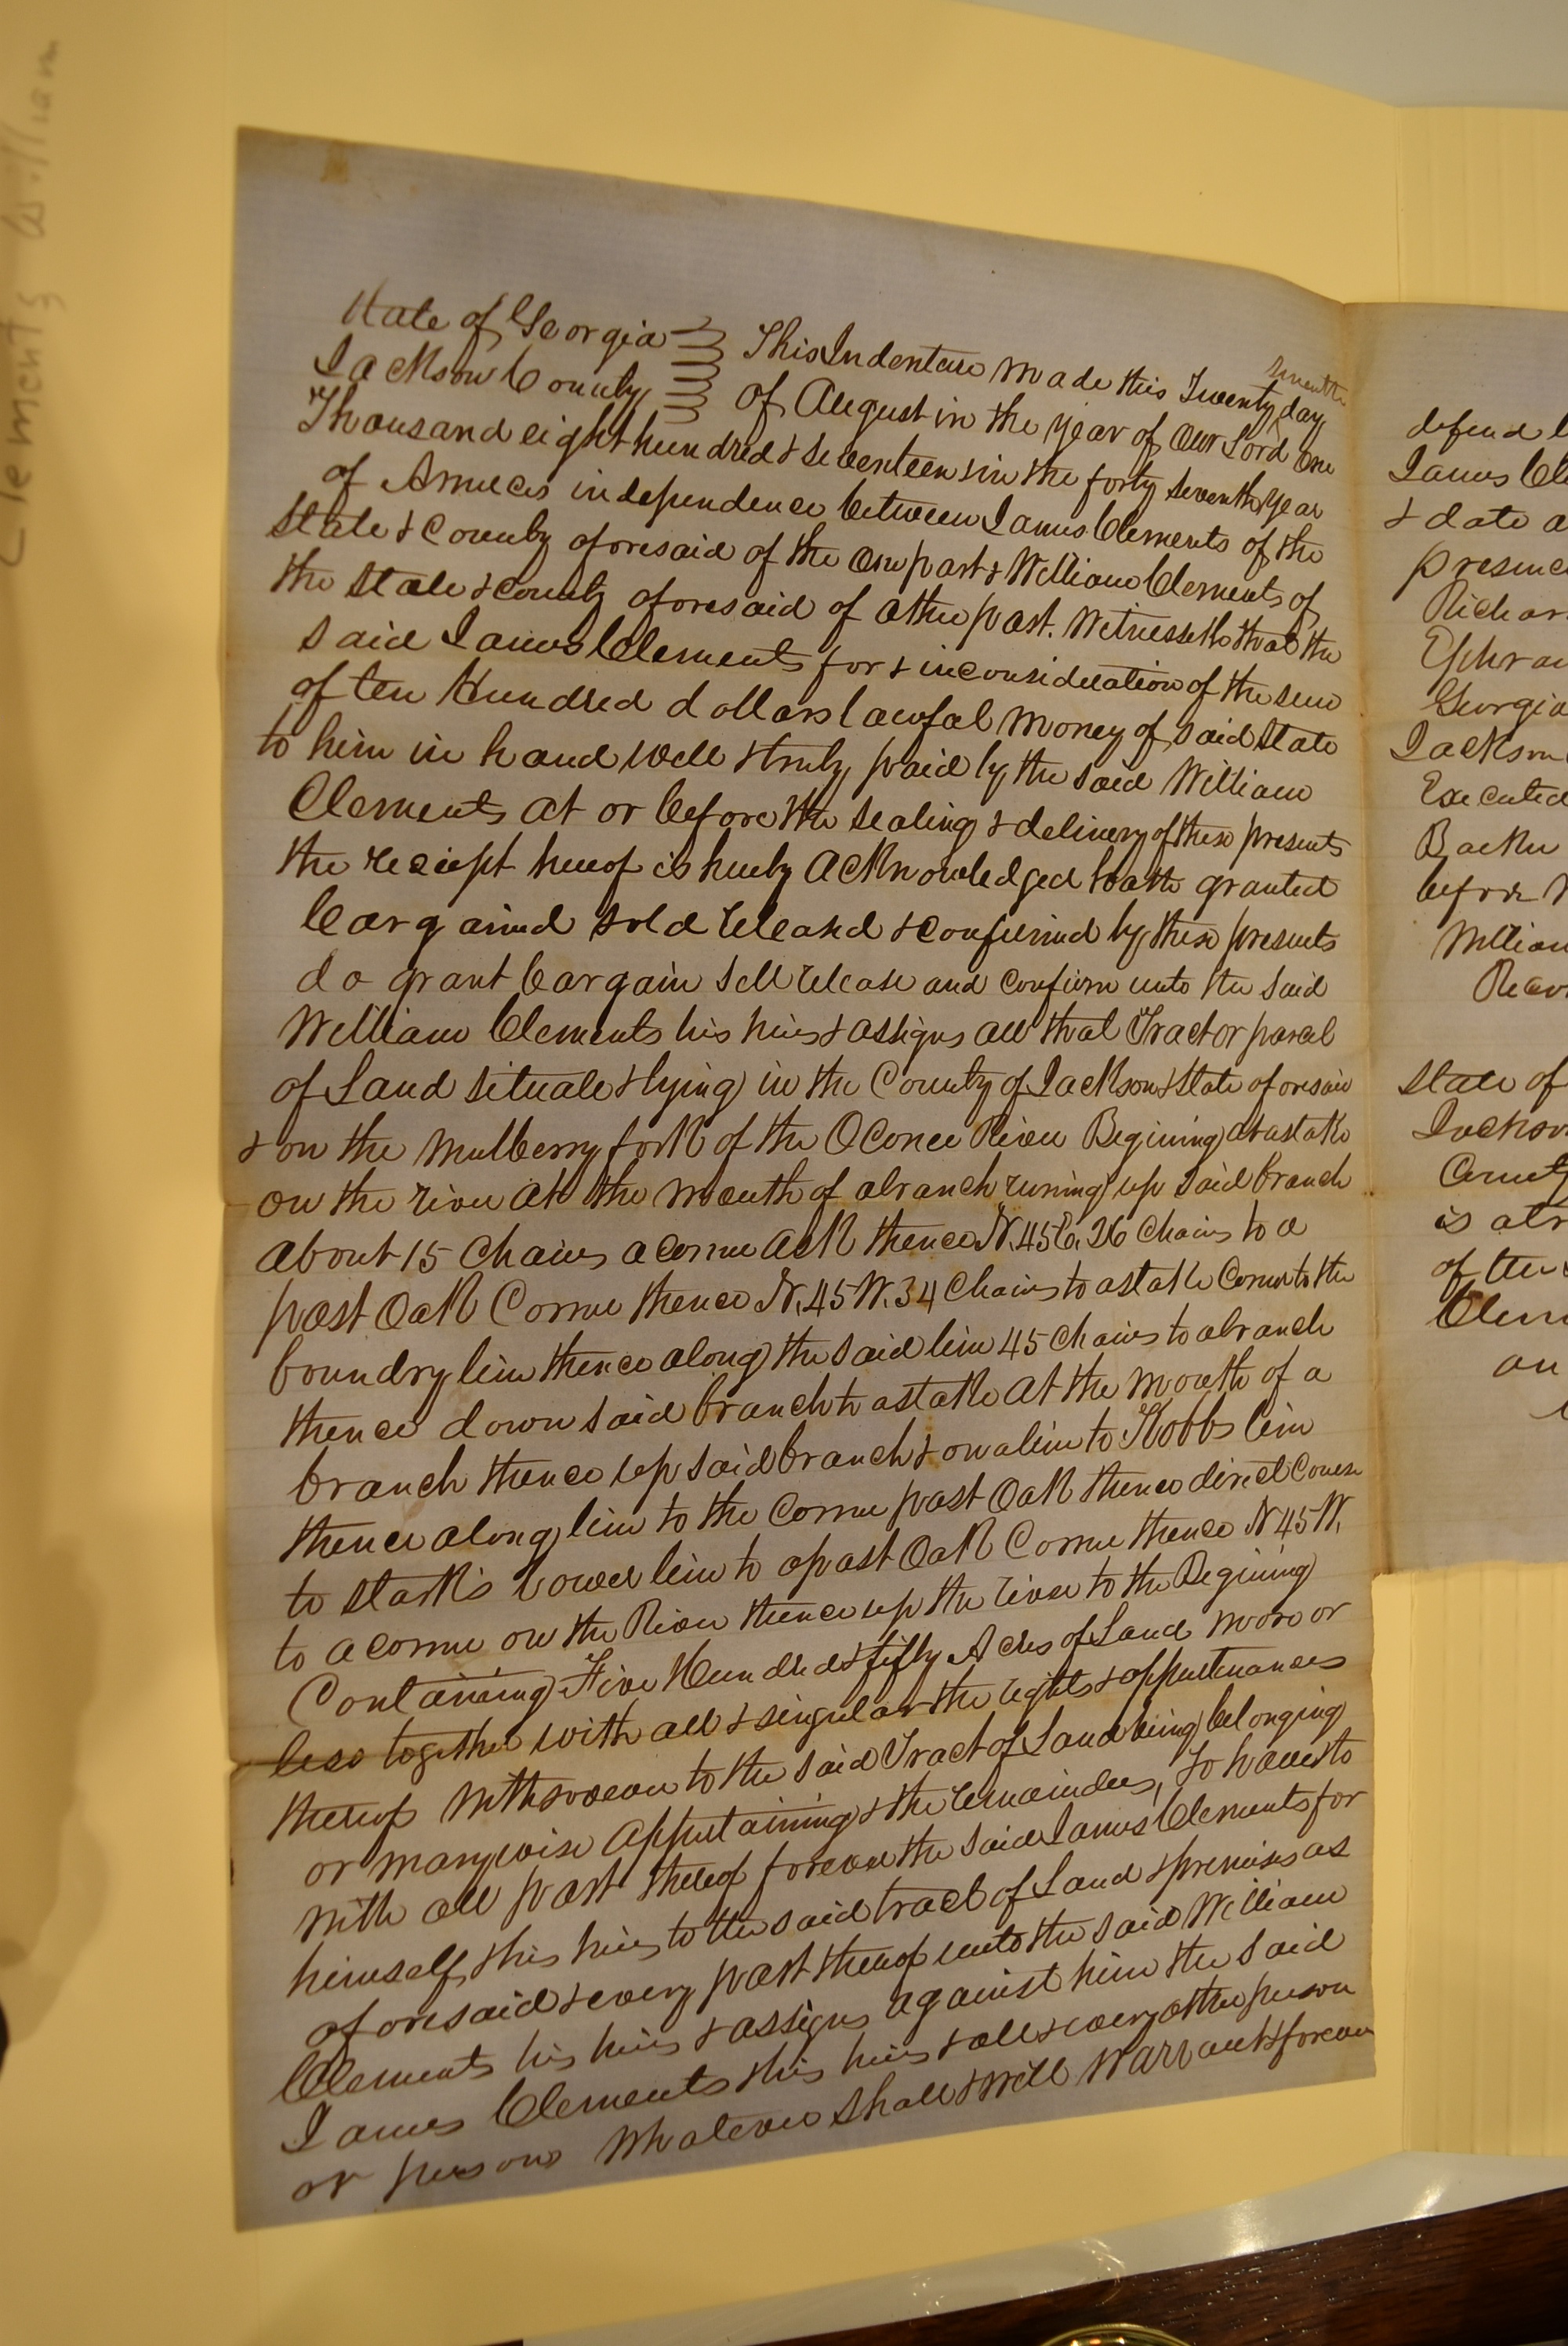 Clements William
State of Georgia
Jackson County
This Indenture made this Twenty seventh day
of August in the year of our Lord one
Thousand eight hundred & seventeen & in the forty seventh year
of Americas independence between James Clements of the
State & County aforesaid of the one part & William Clements of
the State & County aforesaid of other part. Witnesseth that the
said James Clements for & in consideration of the sum
of ten Hundred dollars lawful money of said State
to him in hand well & truly paid by the said William
Clements at or before the sealing & delivery of these presents
the reciept hereof is hereby acknowledged hath granted
bargained sold released & confirmed by these presents
do grant bargain sell release and confirm unto the said
William Clements his heirs & assigns all that Tract or parcel
of Land situate & lying in the County of Jackson & State aforesaid
& on the Mulberry fork of the Oconee River Begining at a stake
on the river at the mouth of a branch runing up said branch
about 15 Chains a corner ash thence N. 45 E. 26 Chains to a
post Oak Corner thence N. 45 W. 34 Chains to a stake Corner to the
boundry line thence along the said line 45 Chains to a branch
thence down said branch to a stake at the mouth of a
branch thence up said branch & on a line to Hobbs line
thence along line to the Corner post Oak thence direct Course
to Starks lower line to a post Oak Corner thence N 45 W.
to a corner on the River thence up the river to the Begining
Containing Five Hundred & fifty Acres of Land more or
less together with all & singular the rights & appurtenances
thereof to the said Tract of Land being belonging
or manywise appertaining & the remainders, To have & to
with all part thereof forever the said James Clements for
himself, & his heirs to the said tract of Land & premises as
aforesaid & every part thereof unto the said William
Clements his heirs & assigns against him the said
James Clements & his heirs & all & every other person
or persons whatever shall & will Warrant & forever
defend
James
& date
presence
Richar
Ephra
Georgia
Jackson
Executed
before
William
State of
Jackson
County
is
of the
Clem
an